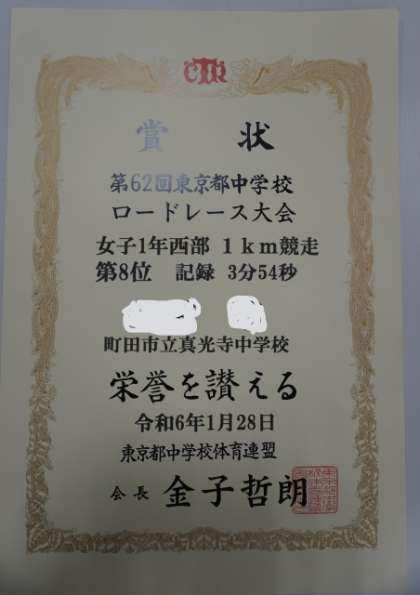 賞状
第62回東京都中学校
ロードレース大会
女子1年西部 1km競走
第8位 記録 3分54秒
町田市立真光寺中学校
栄誉を讃える
令和6年1月28日
東京都中学校体育連盟
会長 金子哲朗